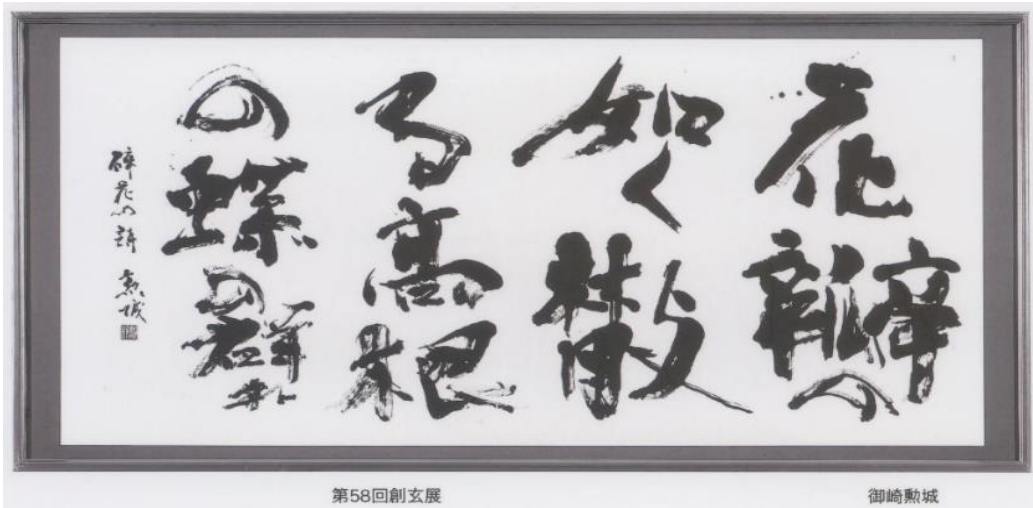 花瓣の
如く散
る高根
の蝶の群れ
碎花の詩 勲城
第58回創玄展
御崎勲城